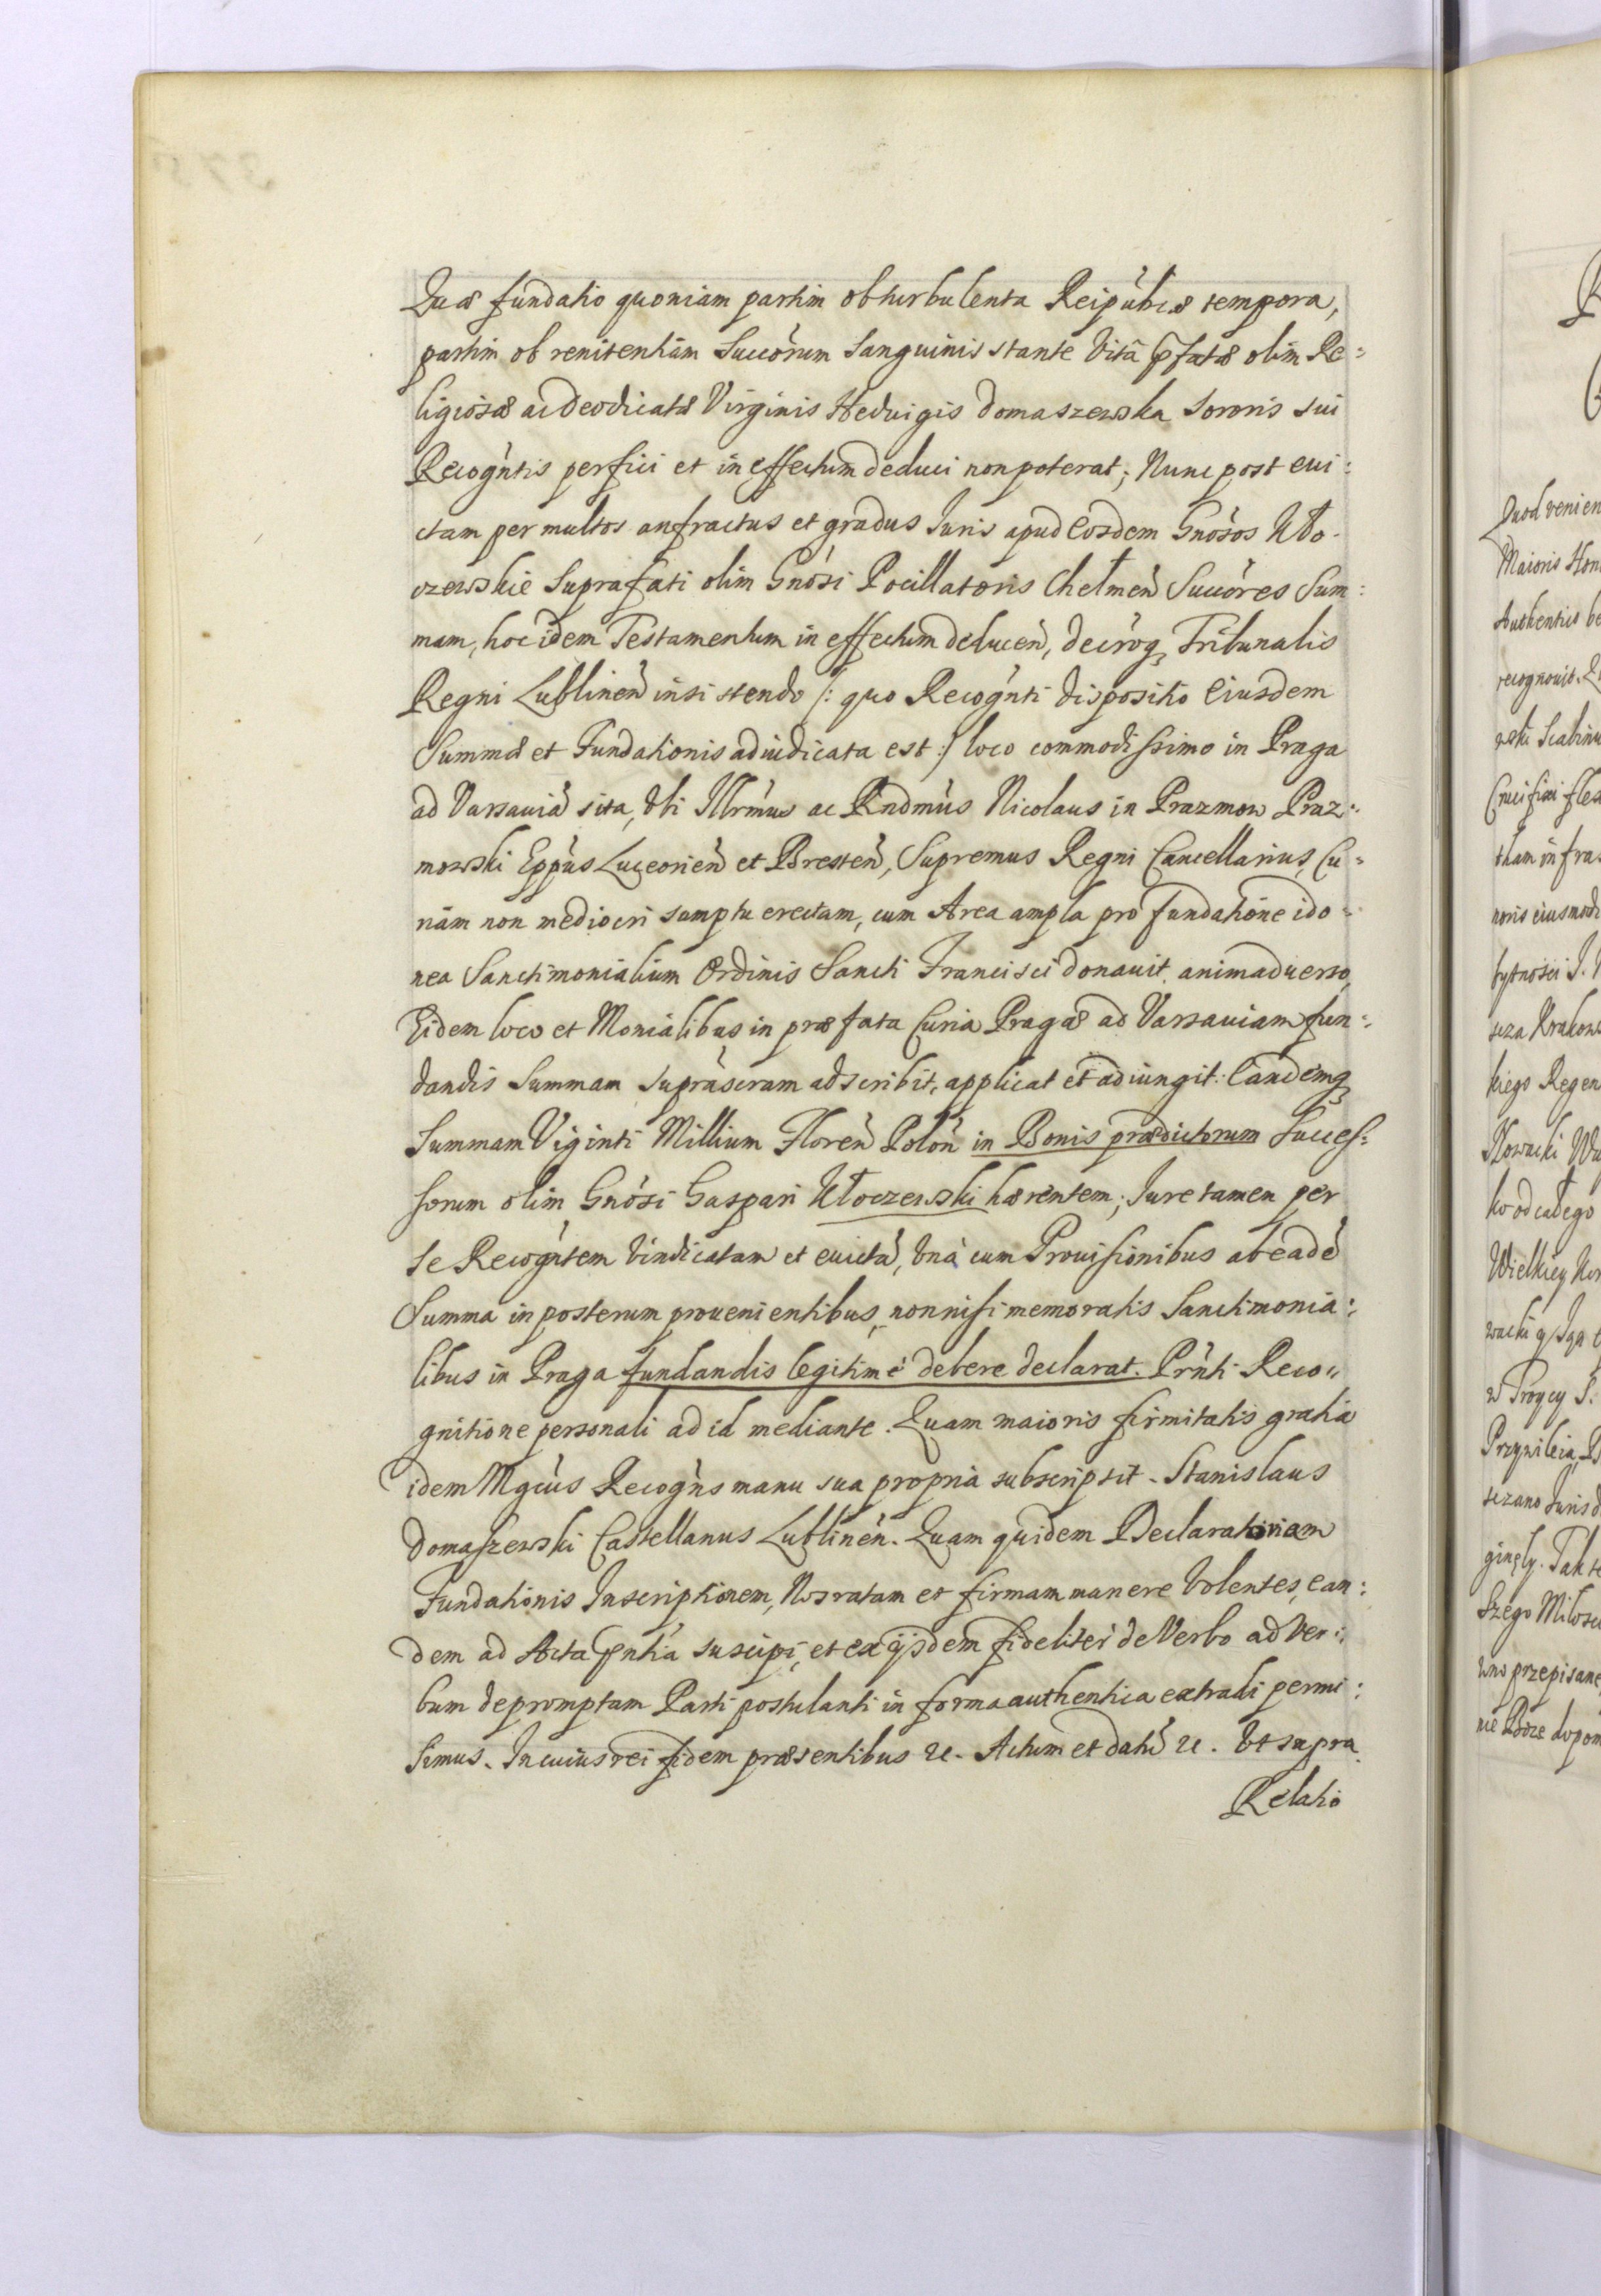 Quæ fundatio quoniam partim ob turbulenta Reipùbcæ tempora,
partim ob renitentiam Succòrum Sanguinis stante vitâ pfatæ olim Re=
ligiosæ ac Deodicatæ Virginis Heduigis Domaszewska Sororis sui
Recogntis perfici et in effectum deduci non poterat; Nunc post eui:
ctam per multos anfractus et gradus Iuris apud Eosdem Gnósos Uło-
czewskie Suprafati olim Gnósi Pocillatoris Chełmeñ Succòres Sum:
mam, hoc idem Testamentum in effectum deduceñ, decròq Tribunalis
Regni Lublineñ insistendo /: quo Recognti dispositio Eiusdem
Summæ et Fundationis adiudicata est :/ loco commodissimo in Praga
ad Varsauiã sita, Vbi Illrmus ac Rndmus Nicolaus in Prazmow Praz:
mowski Eppùs Luceorieñ et Bresteñ, Supremus Regni Cancellarius, Cu=
riam non mediocri sumptu erectam, cum Area ampla pro fundatione ido=
nea Sanctimonialium Ordinis Sancti Francisci donauit animaduerso,
Eidem loco et Monialibus in præfata Curia Pragæ ad Varsauiam fun:
dandis Summam supràscram adscribit, applicat et adiungit: Eandemq
Summam Viginti Millium Floreñ Poloñ in Bonis prædictorum Succes=
sorum olim Gnósi Gaspari Utoczewski hærentem; Iure tamen per
se Recogntem vindicatam et euictã, vnà cum Prouisionibus ab eadẽ
Summa in posterum prouenientibus, nonnisi memoratis Sanctimonia:
libus in Praga fundandis legitimè debere declarat. Prnti Reco=
gnitione personali ad id mediante. Quam maioris firmitatis gratia
idem Mgcùs Recogns manu sua propria subscripsit. Stanislaus
Domaszewski Castellanus Lublineñ. Quam quidem Declaratoriam
Fundationis Inscriptionem, Nos ratam et firmam manere Volentes, ean:
dem ad Acta pntia suscipi, et ex ijsdem fideliter de Verbo ad Ver:
bum depromptam Parti postulanti in forma authentica extradi permi:
simus. In cuius rei fidem præsentibus &c. Actum et datũ &c. Vt supra.
Relatio